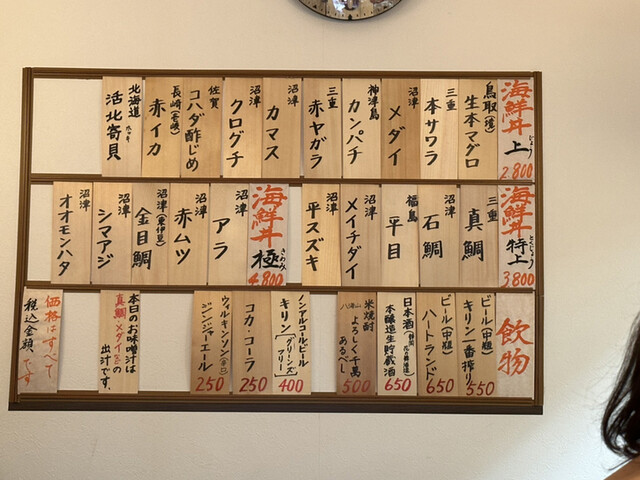 海鮮丼 上 じょう 2.800
鳥取(境) 生本マグロ
三重 本サワラ
沼津 メダイ
神津島 カンパチ
三重 赤ヤガラ
沼津 カマス
沼津 クログチ
佐賀 コハダ酢じめ
長崎(壱岐) 赤イカ
北海道 活北寄貝
海鮮丼 特上 とくじょう 3.800
三重 真鯛
沼津 石鯛
福島 平目
沼津 メイチダイ
沼津 平スズキ
海鮮丼 極 きわみ 4.800
沼津 アラ
沼津 赤ムツ
沼津(東伊豆) 金目鯛
沼津 シマアジ
沼津 オオモンハタ
飲物
ビール(中瓶) キリン一番搾り 550
ビール(中瓶) ハートランド 650
日本酒 本醸造生貯蔵酒 650
米焼酎 よろしく千萬あるべし 500
八海山
ノンアルコールビール キリン[グリーンズフリー] 400
コカ・コーラ 250
ウィルキンソン(辛口) ジンジャーエール 250
本日のお味噌汁は
真鯛、メダイ、の
出汁です。
価格はすべて
税込金額です